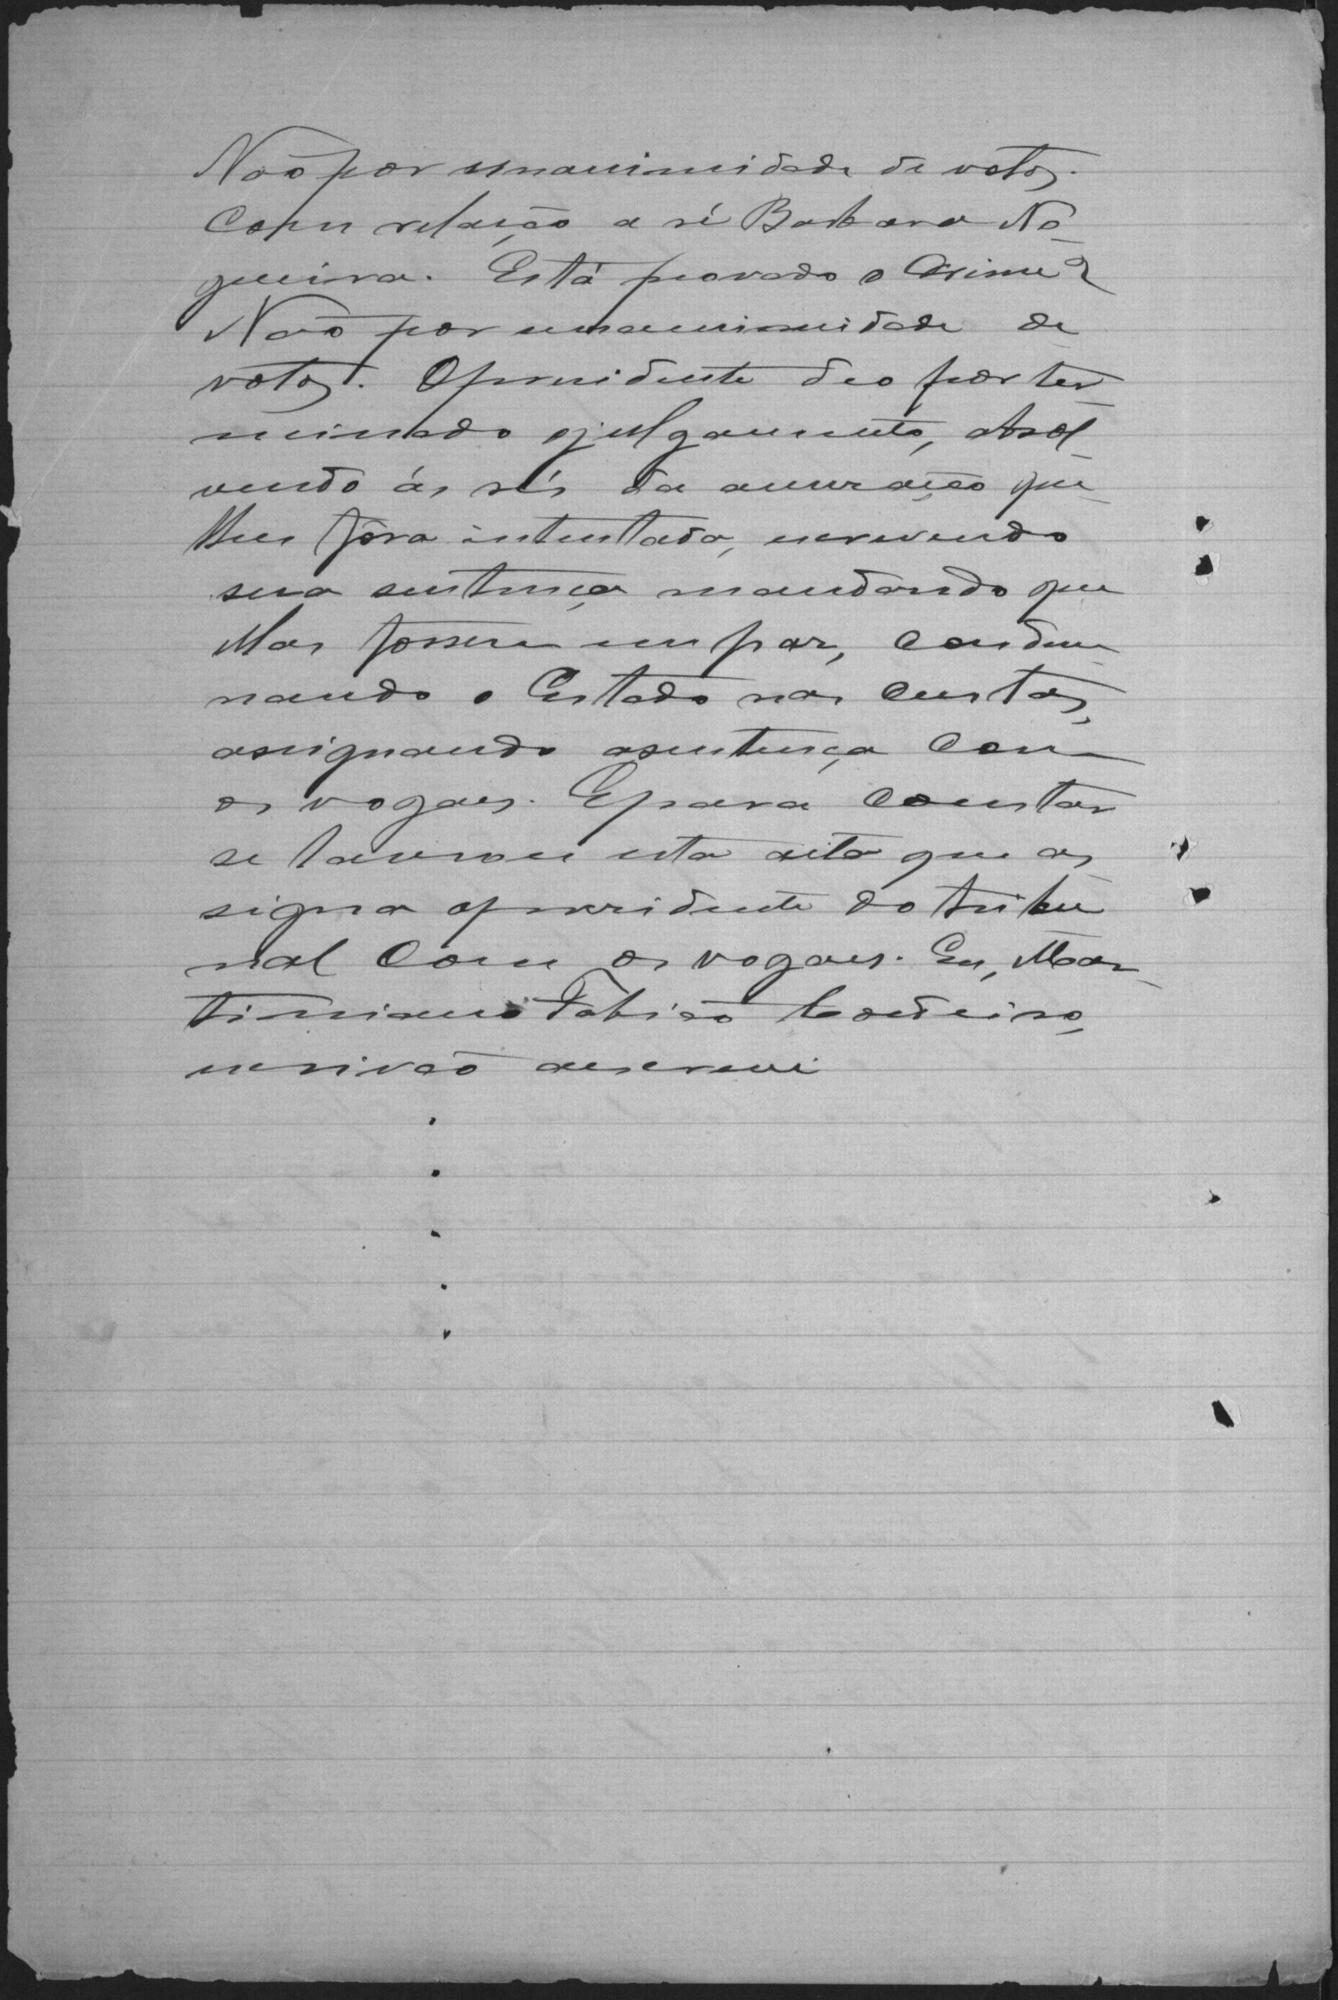 Não por unanimidade de votos.
Com relação a ré Barbara No
gueira. Está provado o Crime?
Não por unanimidade de
votos. O presidente deo por ter
minado o julgamento, absol
vendo ás rés da accusação que
lhes fôra intentada, escrevendo
sua sentença mandando que
ellas fossem em paz, condem
nando o Estado nas custas,
assignando a sentença com
os vogaes. E para constar
se lavrou esta acta que as
signa o presidente do tribu
nal com os vogaes. Eu, Mar
timiano Fabião Cordeiro,
escrivão a escrevi